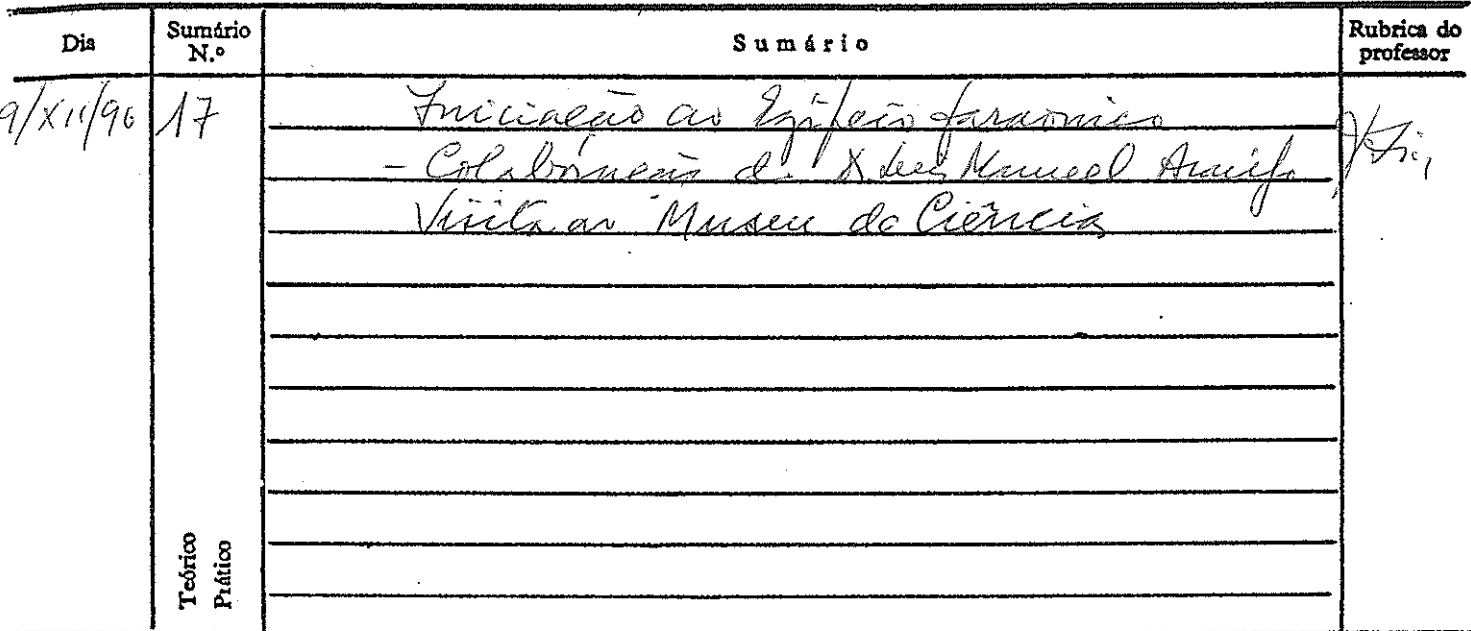 Dia Sumário N.º Sumário Rubrica do professor
9/XII/96 17 Iniciação ao Egípcio faraónico
- Colaboração de Luís Manuel Araújo
Visita ao Museu da Ciência
Teórico
Prático